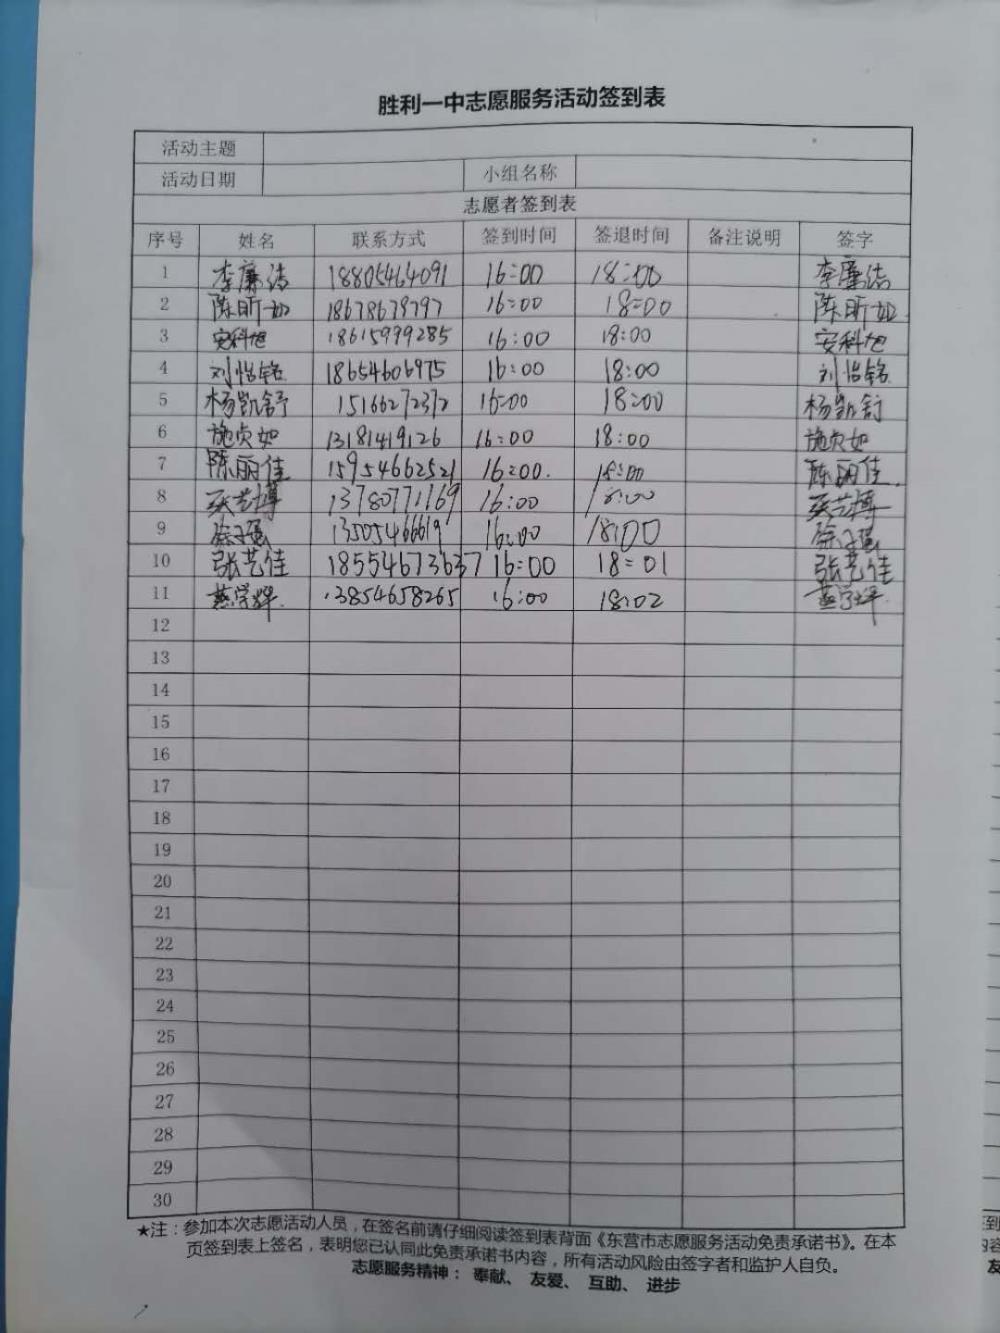 胜利一中志愿服务活动签到表
活动主题
活动日期 小组名称
志愿者签到表
序号 姓名 联系方式 签到时间 签退时间 备注说明 签字
1 李廉洁 18805464091 16:00 18:00 李廉洁
2 陈昕如 18678679797 16:00 18:00 陈昕如
3 安科旭 18615999285 16:00 18:00 安科旭
4 刘怡铭 18654606975 16:00 18:00 刘怡铭
5 杨凯舒 15166272372 16:00 18:00 杨凯舒
6 施贞如 13181419126 16:00 18:00 施贞如
7 陈丽佳 15954662521 16:00. 18:00 陈丽佳.
8 张艺博 13780771169 16:00 18:00 张艺博
9 13505466619 16:00 18:00
10 张艺佳 18554673637 16:00 18:01 张艺佳
11 燕学辉. 13854658265 16:00 18:02 燕学辉.
12
13
14
15
16
17
18
19
20
21
22
23
24
25
26
27
28
29
30
★注：参加本次志愿活动人员，在签名前请仔细阅读签到表背面《东营市志愿服务活动免责承诺书》。在本
页签到表上签名，表明您已认同此免责承诺书内容，所有活动风险由签字者和监护人自负。
志愿服务精神： 奉献、 友爱、 互助、 进步